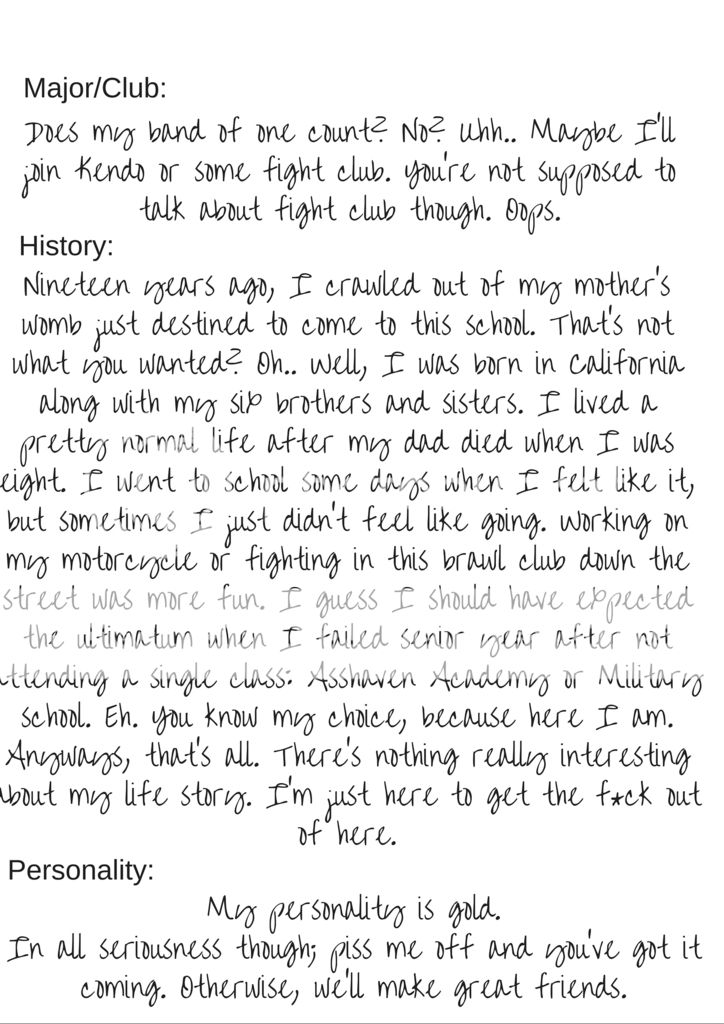 Major/Club:
Does my band of one count? No? Uhh.. Maybe I'll
join Kendo or some fight club. You're not supposed to
talk about fight club though. Oops.
History:
Nineteen years ago, I crawled out of my mother's
womb just destined to come to this school. That's not
what you wanted? Oh.. Well, I was born in California
along with my six brothers and sisters. I lived a
pretty normal life after my dad died when I was
eight. I went to school some days when I felt like it,
but sometimes I just didn't feel like going. Working on
my motorcycle or fighting in this brawl club down the
street was more fun. I guess I should have expected
the ultimatum when I failed senior year after not
attending a single class: Asshaven Academy or Military
school. Eh. You know my choice, because here I am.
Anyways, that's all. There's nothing really interesting
about my life story. I'm just here to get the f*ck out
of here.
Personality:
My personality is gold.
In all seriousness though; piss me off and you've got it
coming. Otherwise, we'll make great friends.